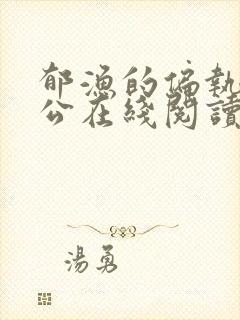 郁漁的偏執
公在綫閱讀
湯勇